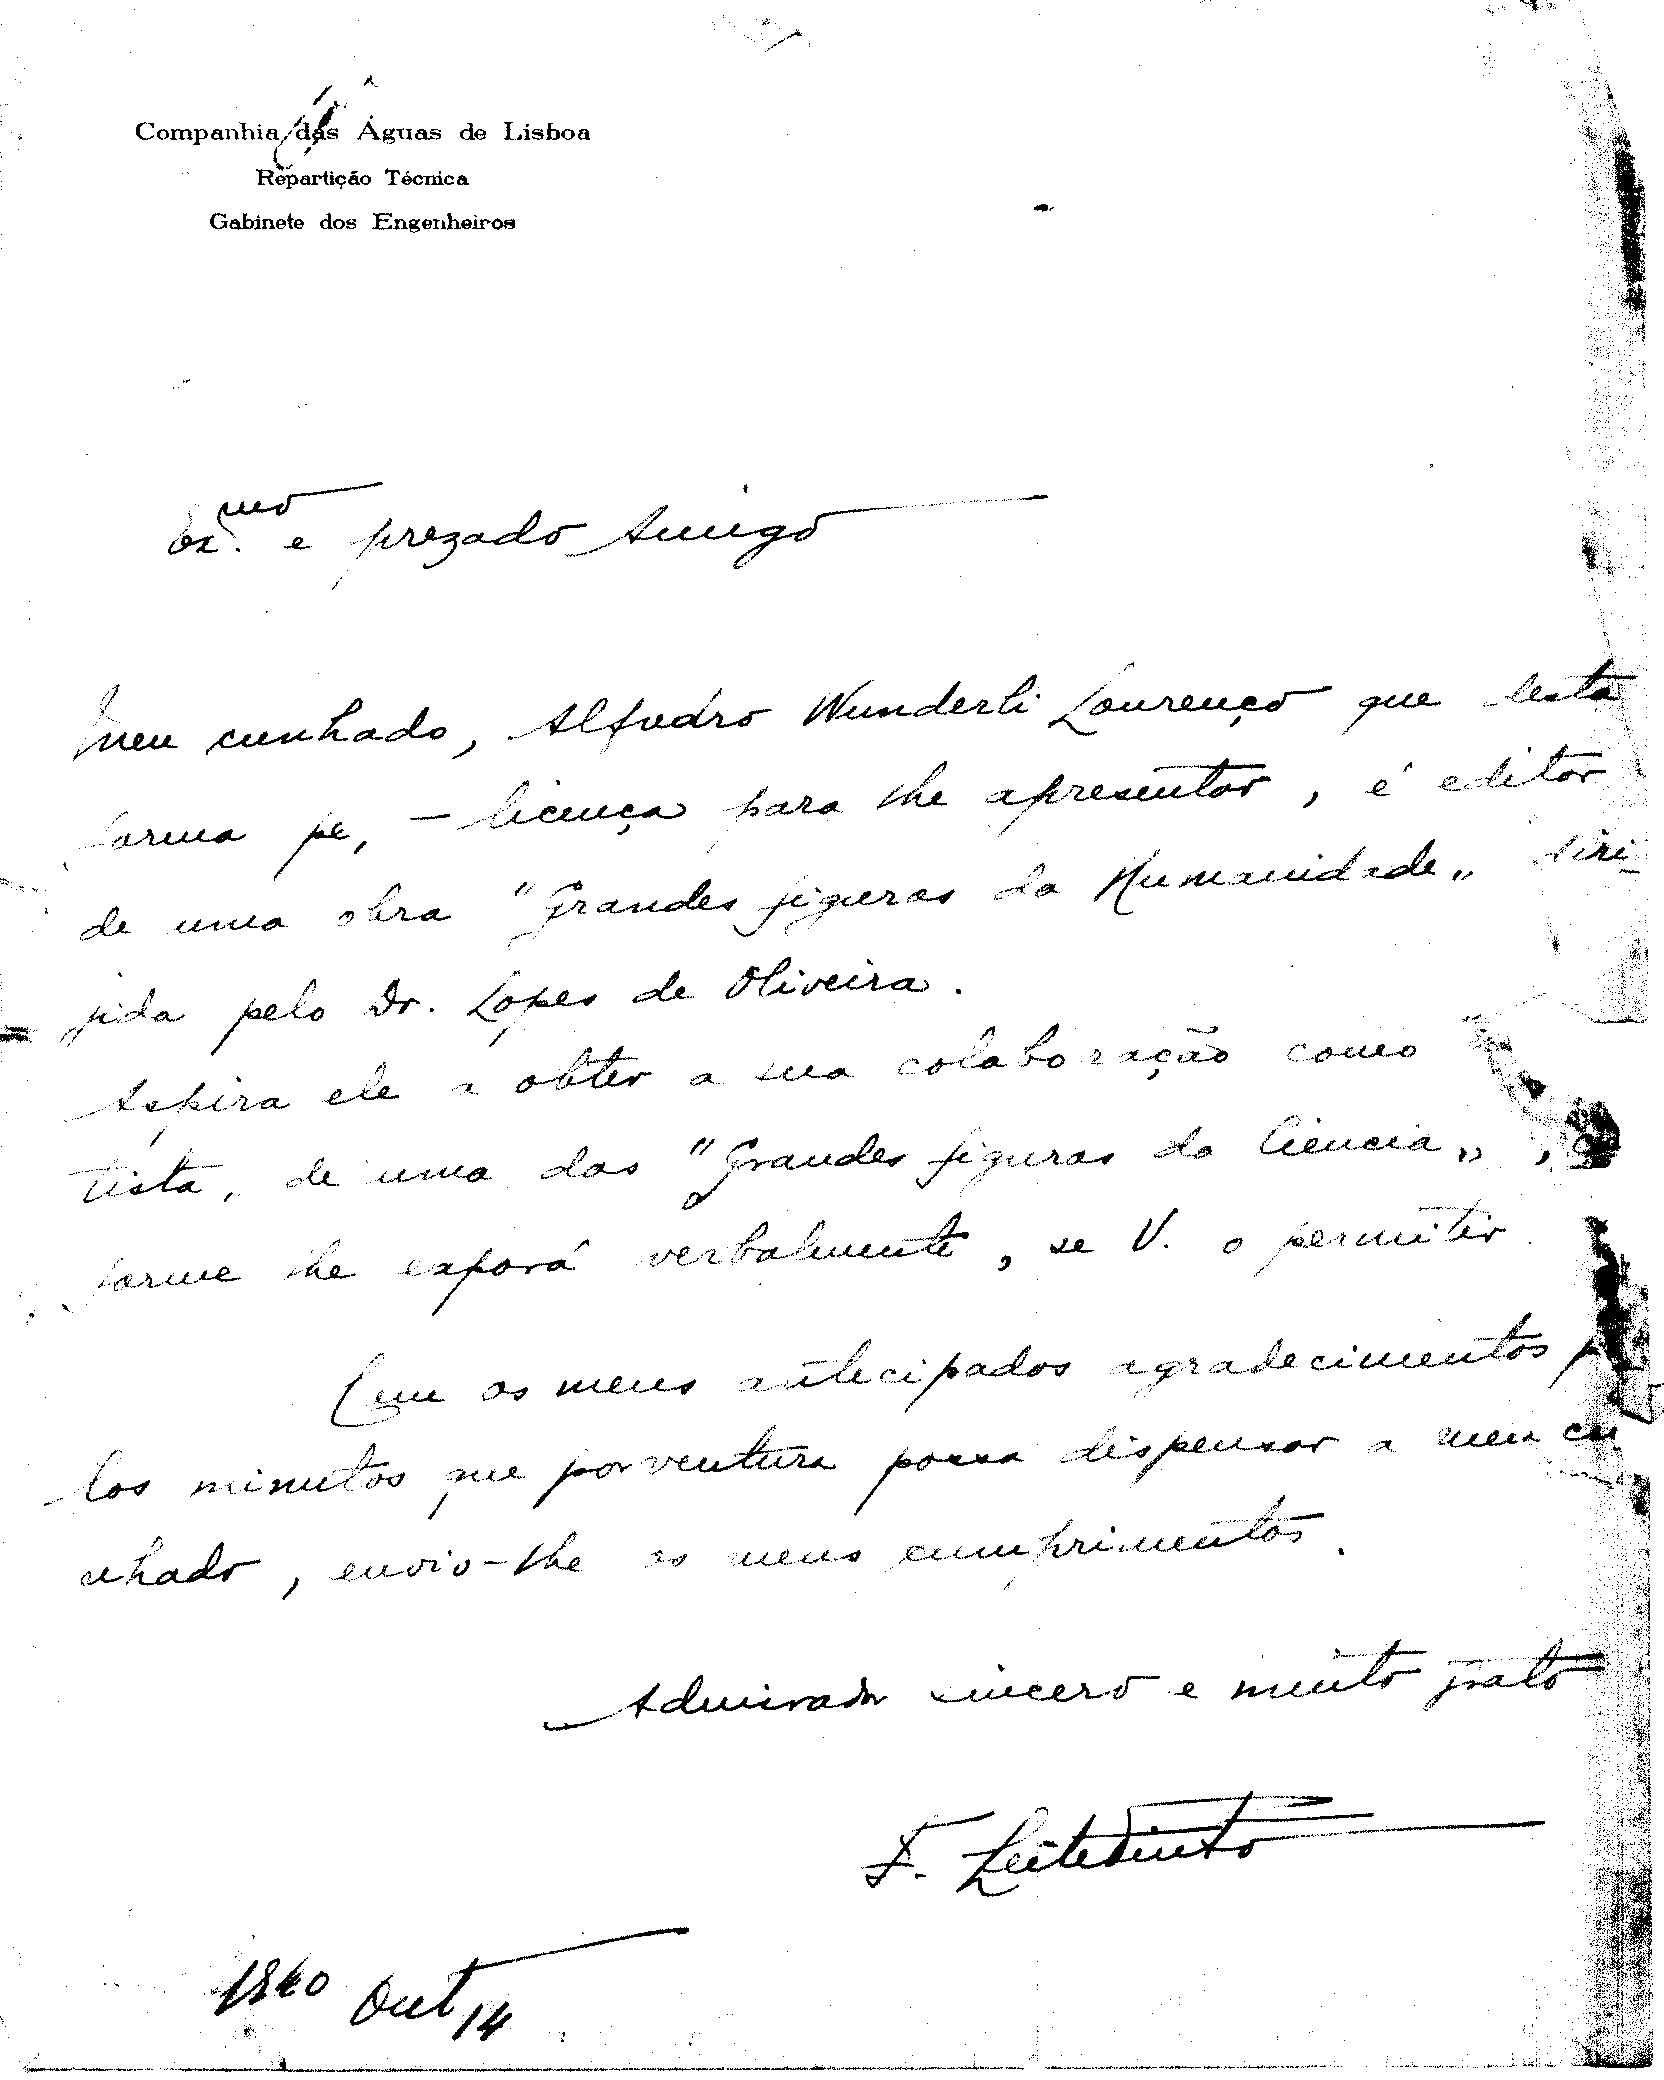 Companhia das Águas de Lisboa
Repartição Técnica
Gabinete dos Engenheiros
Ex.mo e prezado Amigo
Meu cunhado, Alfredo Wunderli Lourenço que desta
forma pe, — licença para lhe apresentar, é editor
de uma obra "Grandes figuras da Humanidade„ diri-
jida pelo Dr. Lopes de Oliveira.
Aspira ele a obter a sua colaboração como
tista, de uma das "Grandes figuras da Ciencia„,
forme lhe exporá verbalmente, se V. o permitir.
Com os meus antecipados agradecimentos p
los minutos que porventura possa dispensar a meu cu
nhado, envio-lhe os meus cumprimentos.
Admirador sincero e muito grato
F. Leite Pinto
1940 Out 14